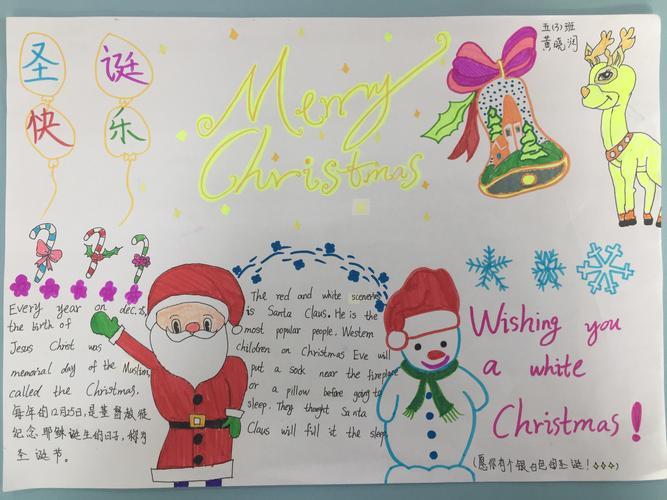 圣诞
快乐
Merry
Christmas
五(3)班
黄晓润
Every year on dec.25,
the birth of
Jesus Christ was
memorial day of the Muslim,
called the Christmas.
每年的12月25日,是基督教徒
纪念耶稣诞生的日子,称为
圣诞节。
The red and white scenene
is Santa Claus. He is the
most popular people. Western
children on Christmas Eve will
put a sock near the fireplace
or a pillow before going to
sleep. They thought Santa
Claus will fill it the sleep.
Wishing you
a white
Christmas!
(愿你有个银白色的圣诞!)